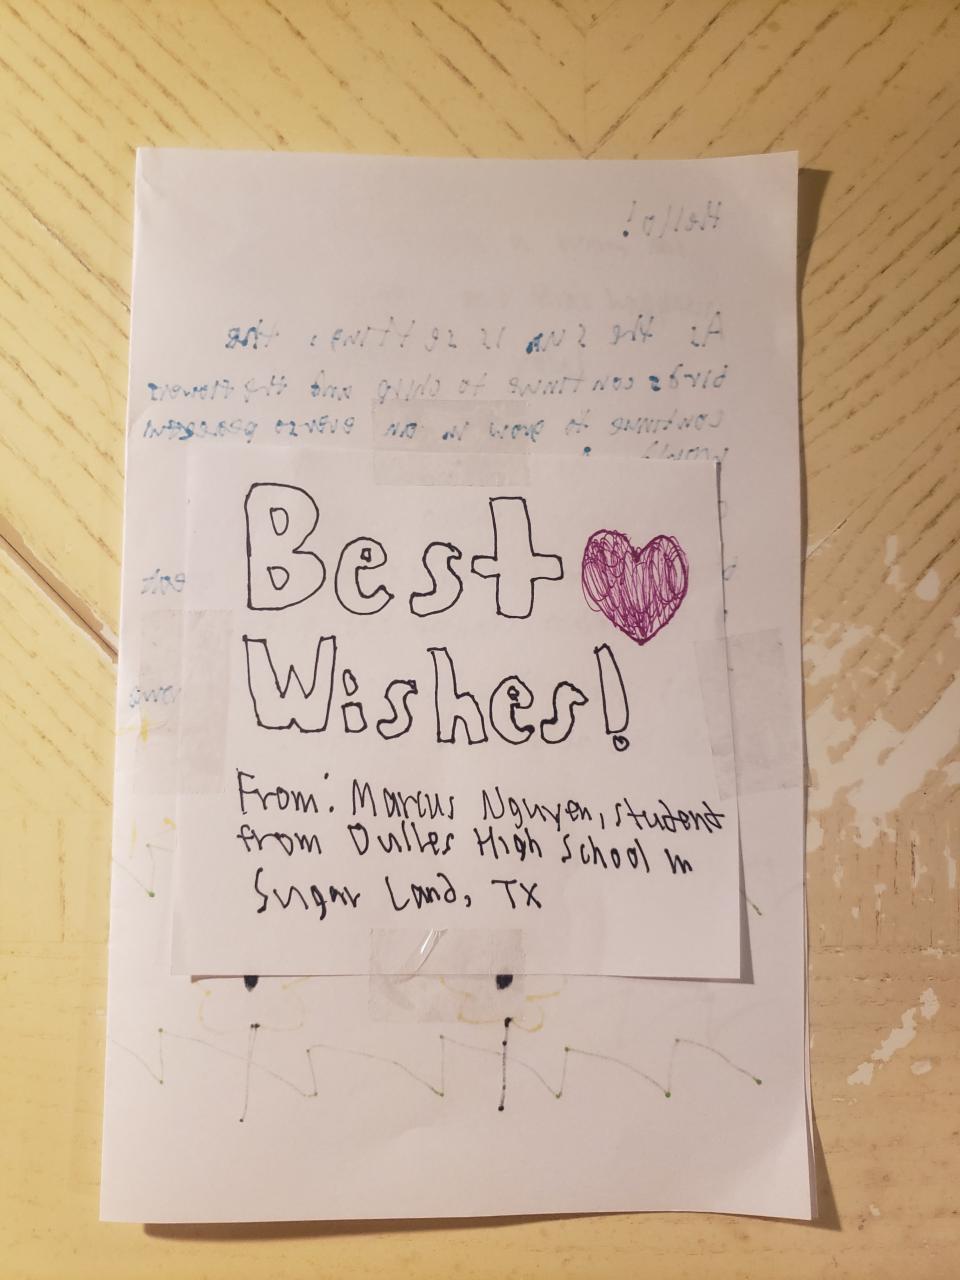 Hello!
As the sun is setting, the
birds continue to chirp and the flowers
continue to grow in an ever so peaceful
Best
Wishes!
From: Marcus Nguyen, student
from Dulles High School in
Sugar Land, TX